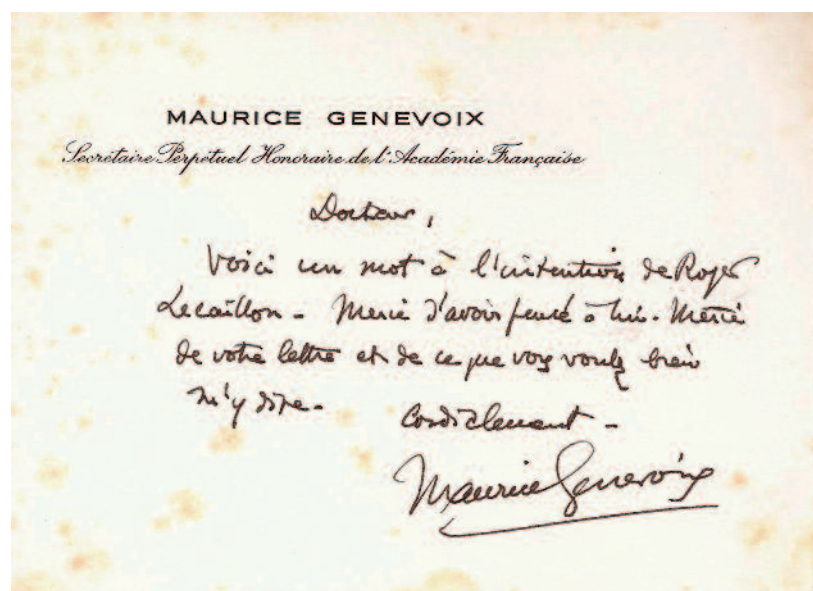 MAURICE GENEVOIX
Secrétaire Perpétuel Honoraire de l'Académie Française
Docteur,
Voici un mot à l'intention de Roger
Lecaillon - Merci d'avoir pensé à lui. Merci
de votre lettre et de ce que vous voulez bien
m'y dire -
Cordialement -
Maurice Genevoix